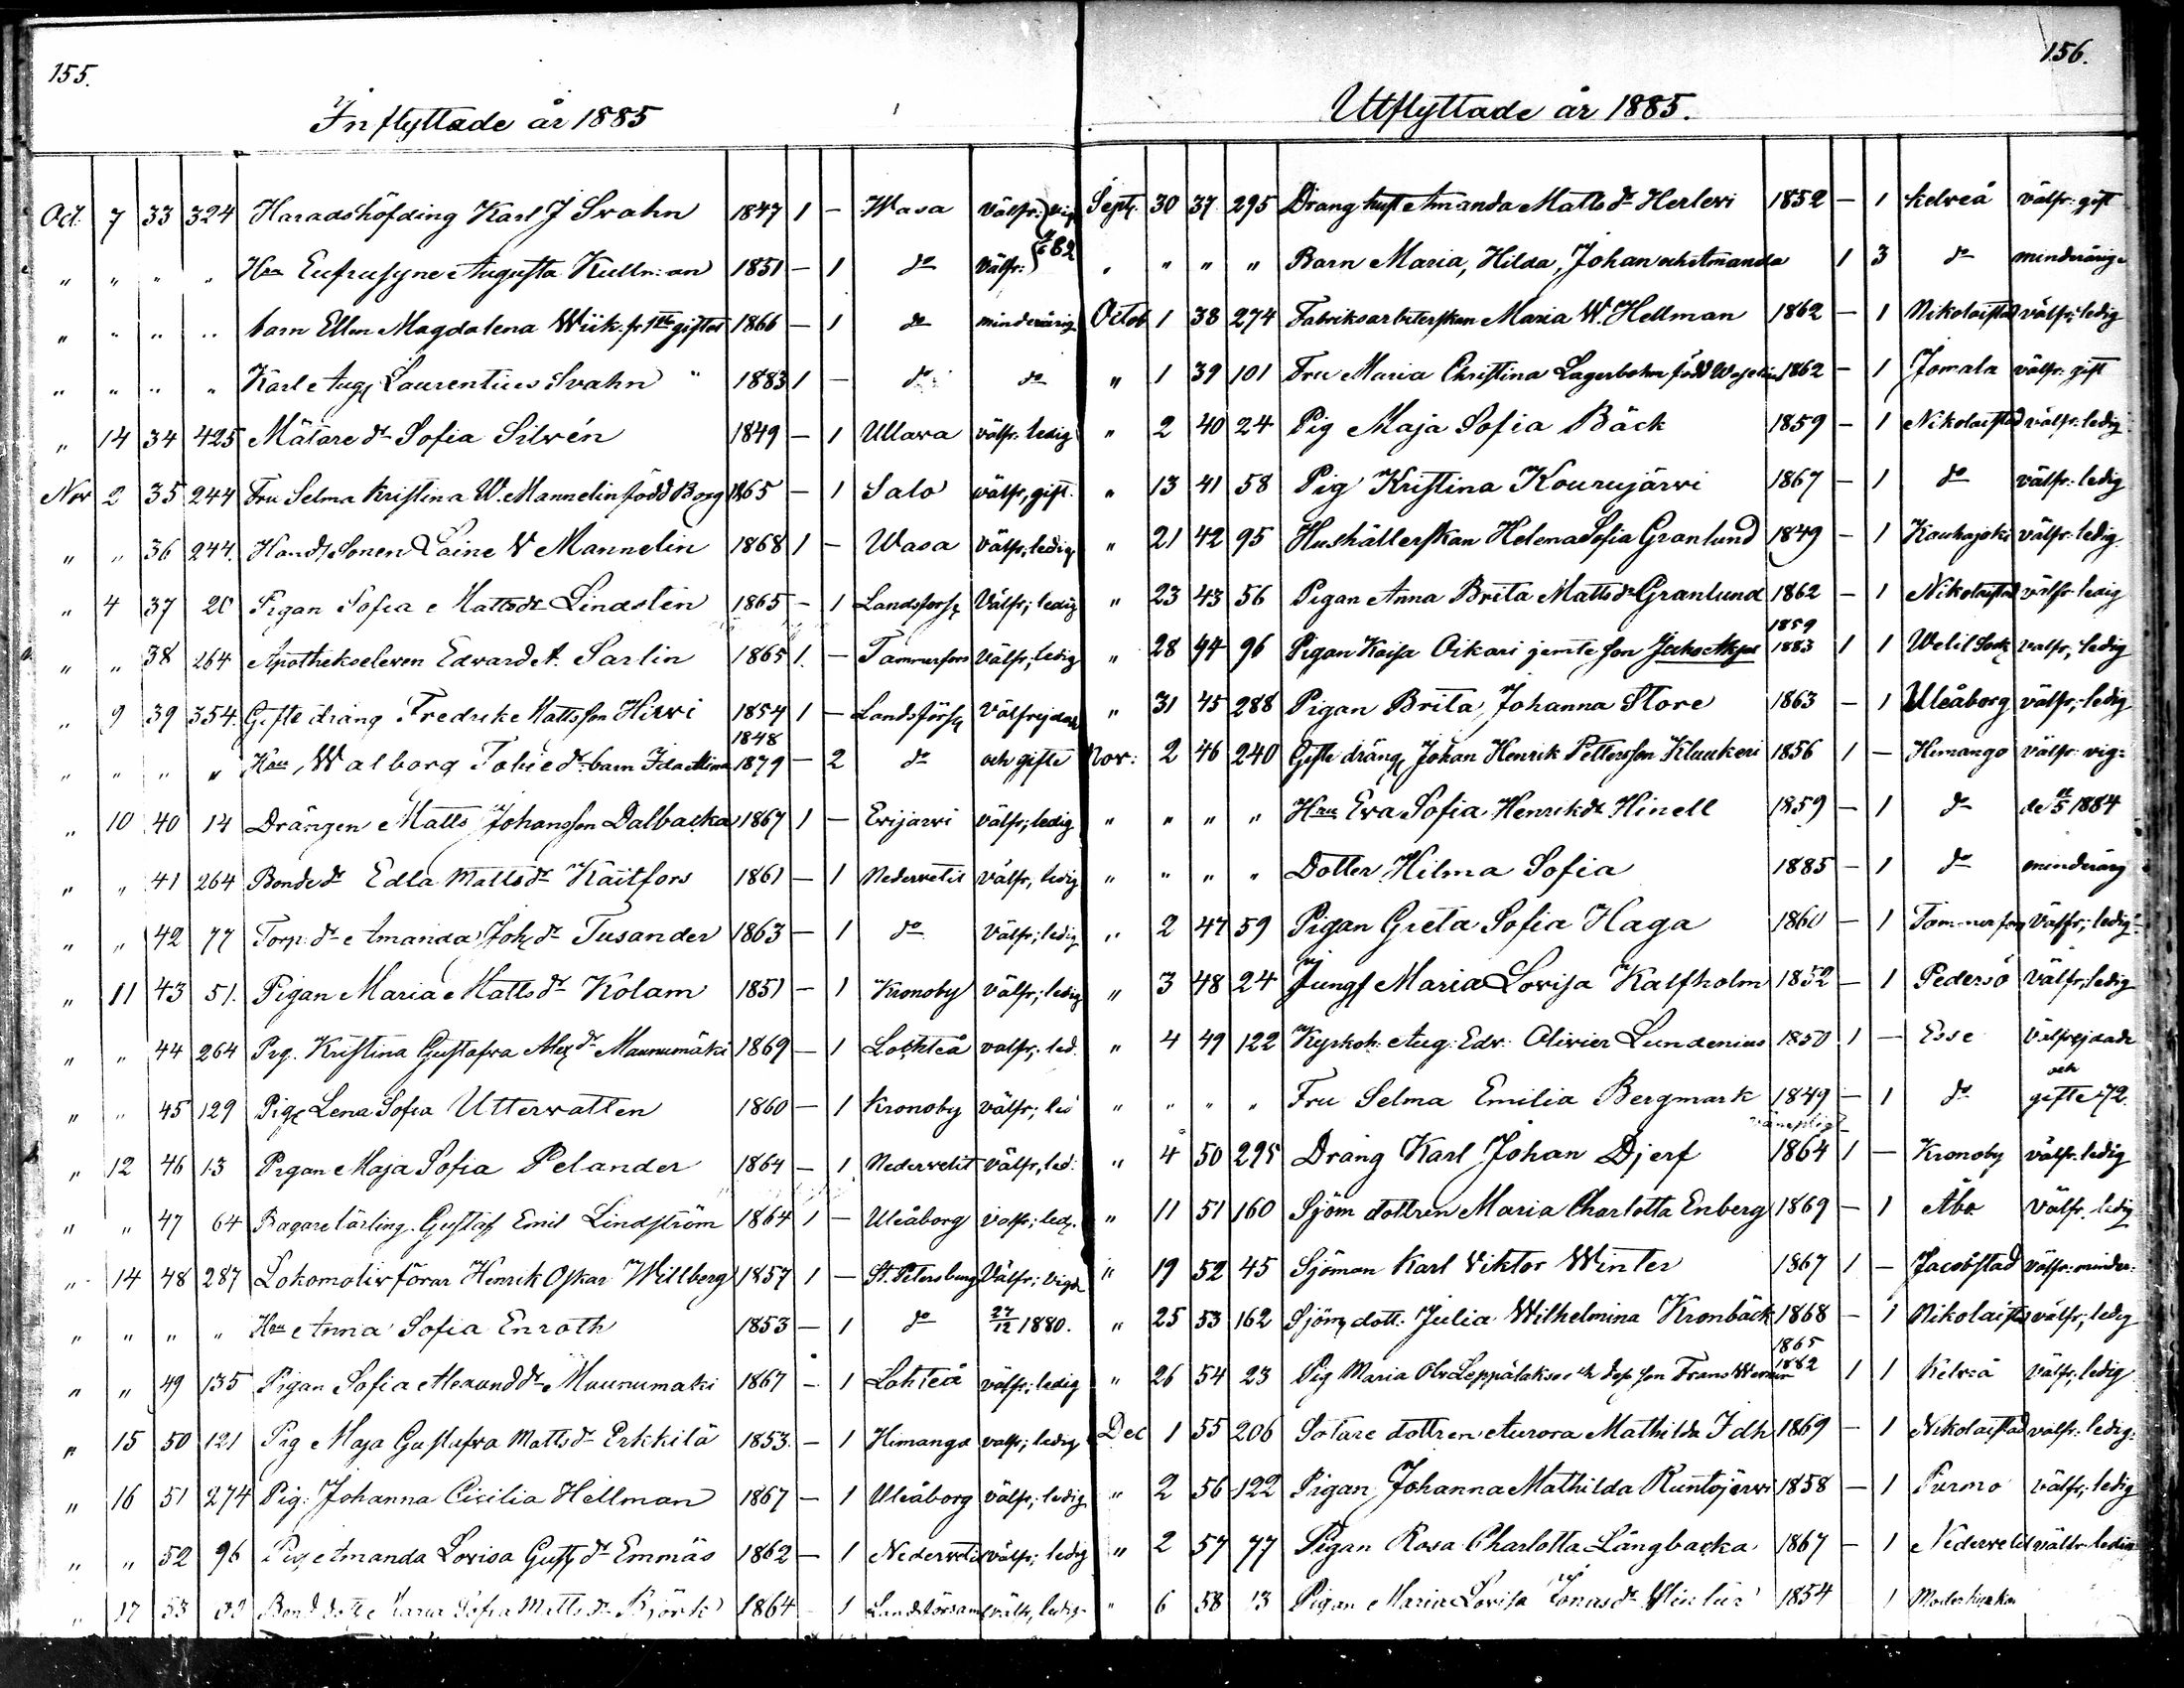 155.
Inflyttade år 1885
Oct. 7 33 324 Haradshöfding Karl J Svahn 1847 1 - Wasa välfr: vig
" " " " Hu Eufrusyne Augusta Kullman 1851 - 1 do välfr: 82
" " " " barn Ellen Magdalena Wiik fr 1sta giftet 1866 - 1 do minderårig
" " " " Karl Aug Laurentius Svahn " 1883 1 - do do
" 14 34 425 Mätare dr Sofia Silvén 1849 - 1 Ullava välfr: ledig
Nov 2 35 244 Fru Selma Kristina W. Mannelin född Borg 1865 - 1 Salo välfr, gift.
" " 36 244. Hand. Sonen Laine W Mannelin 1868 1 - Wasa välfr; ledig
" 4 37 20 Pigan Sofia Mattsdr Lindstén 1865 - 1 Landsförs välfr; ledig
" " 38 264 Apothekseleven Edvard A. Sarlin 1865 1. - Tammerfors välfr; ledig
" 9 39 354. Gifte dräng Fredrik Mattsson Hirvi 1854 1 - Landsförs välfrejdade
" " " " Hu Walborg dr barn Ida Alina 1848 1879 - 2 do och gifte
" 10 40 14 Drängen Matts Johansson Dalbacka 1867 1 - Evijärvi välfr; ledig
" " 41 264 Bonde dr Edla Mattsdr Kaitfors 1861 - 1 Nedervetil välfr, ledig
" " 42 77 Torp. dr Amanda Joh. dr Tusander 1863 - 1 do välfr; ledig
" 11 43 51. Pigan Maria Mattsdr Kölam 1851 - 1 Kronoby välfr; ledig
" " 44 264 Pig. Kristina Gustafva Alex dr Maunumäki 1869 - 1 Lochteå välfr; led.
" " 45 129 Pig Lena Sofia Uttervatten 1860 - 1 Kronoby välfr; led
" 12 46 13 Pigan Maja Sofia Pelander 1864 - 1 Nedervetil välfr, led:
" " 47 64 Bagarelärling. Gustaf Emil Lindström 1864 1 - Uleåborg välfr; led.
" 14 48 287 Lokomotivförar Henrik Oskar Willberg 1857 1 - St. Petersburg välfr; vigde
" " " " Hu Anna Sofia Enroth 1853 - 1 do 27/12 1880.
" " 49 135 Pigan Sofia Alexand dr Maunumäki 1867 - 1 Lohteå välfr; ledig
" 15 50 121 Pig Maja Gustafva Mattsdr Erkkilä 1853. - 1 Himango välfr; ledig
" 16 51 274 Pig: Johanna Cicilia Hellman 1867 - 1 Uleåborg välfr; ledig
" " 52 96 Pig Amanda Lovisa Gust dr Emmäs 1862 - 1 Nedervetil välfr; ledig
" 17 53 Bond dott Maria Sofia Matts dr Björk 1864 - 1 Landsförsaml välfr, ledig
156.
Utflyttade år 1885.
Sept. 30 37 295 Dräng hust Amanda Mattsdr Herlevi 1852 - 1 Kelveå välfr: gift
" " " " Barn Maria, Hilda, Johan och Amanda 1 3 do minderåriga
Octob 1 38 274 Fabriksarbeterskan Maria W. Hellman 1862 - 1 Nikolaistad välfr; ledig
" 1 39 101 Fru Maria Christina Lagerbohm född 1862 - 1 Jomala välfr: gift
" 2 40 24 Pig Maja Sofia Bäck 1859 - 1 Nikolaistad välfr: ledig
" 13 41 58 Pig Kristina Kourujärvi 1867 - 1 do välfr: ledig
" 21 42 95 Hushållerskan Helena Sofia Granlund 1849 - 1 Kauhajoki välfr: ledig.
" 23 43 56 Pigan Anna Brita Mattsdr Granlund 1862 - 1 Nikolaistad välfr ledig
" 28 44 96 Pigan Kaisa Oikari jemte son 1859 1883 1 1 Wetil Sock välfr; ledig
" 31 45 288 Pigan Brita Johanna Store 1863 - 1 Uleåborg välfr; ledig
Nov: 2 46 240 Gifte dräng Johan Henrik Pettersson Klaukeri 1856 1 - Himango välfr: vig=
" " " " Hru Eva Sofia Henrikdr Hinell 1859 - 1 do de 5 1884
" " " " Dotter Hilma Sofia 1885 - 1 do minderårig
" 2 47 59 Pigan Greta Sofia Haga 1860 - 1 Tammerfors välfr; ledig
" 3 48 24 Jungf Maria Lovisa Kalfholm 1852 - 1 Pedersö välfr; ledig
" 4 49 122 Kyrkoh. Aug. Edv. Olivier Lundenius 1850 1 - Esse välfrejdade
" " " " Fru Selma Emilia Bergmark 1849 - 1 do och gifte 72.
" 4 50 295 Dräng Karl Johan Djerf värnepligt 1864 1 - Kronoby välfr. ledig
" 11 51 160 Sjöm dottren Maria Charlotta Enberg 1869 - 1 Åbo välfr. ledig
" 19 52 45 Sjöman Karl Viktor Winter 1867 1 - Jacobstad välfr: minder:
" 25 53 162 Sjöm dott. Julia Wilhelmina Kronbäck 1868 - 1 Nikolaistad välfr; ledig
" 26 54 23 Pig Maria Leppälaks son Frans 1865 1882 1 1 Kelveå välfr; ledig
Dec 1 55 206 Sotare dottren Aurora Mathilda Idh 1869 - 1 Nikolaistad välfr: ledig
" 2 56 122 Pigan Johanna Mathilda Runtojärvi 1858 - 1 Purmo välfr; ledig
" 2 57 77 Pigan Rosa Charlotta Långbacka 1867 - 1 Nedervetil välfr ledig
" 6 58 13 Pigan Maria Lovisa Jonasdr 1854 1 Moderkyrkan